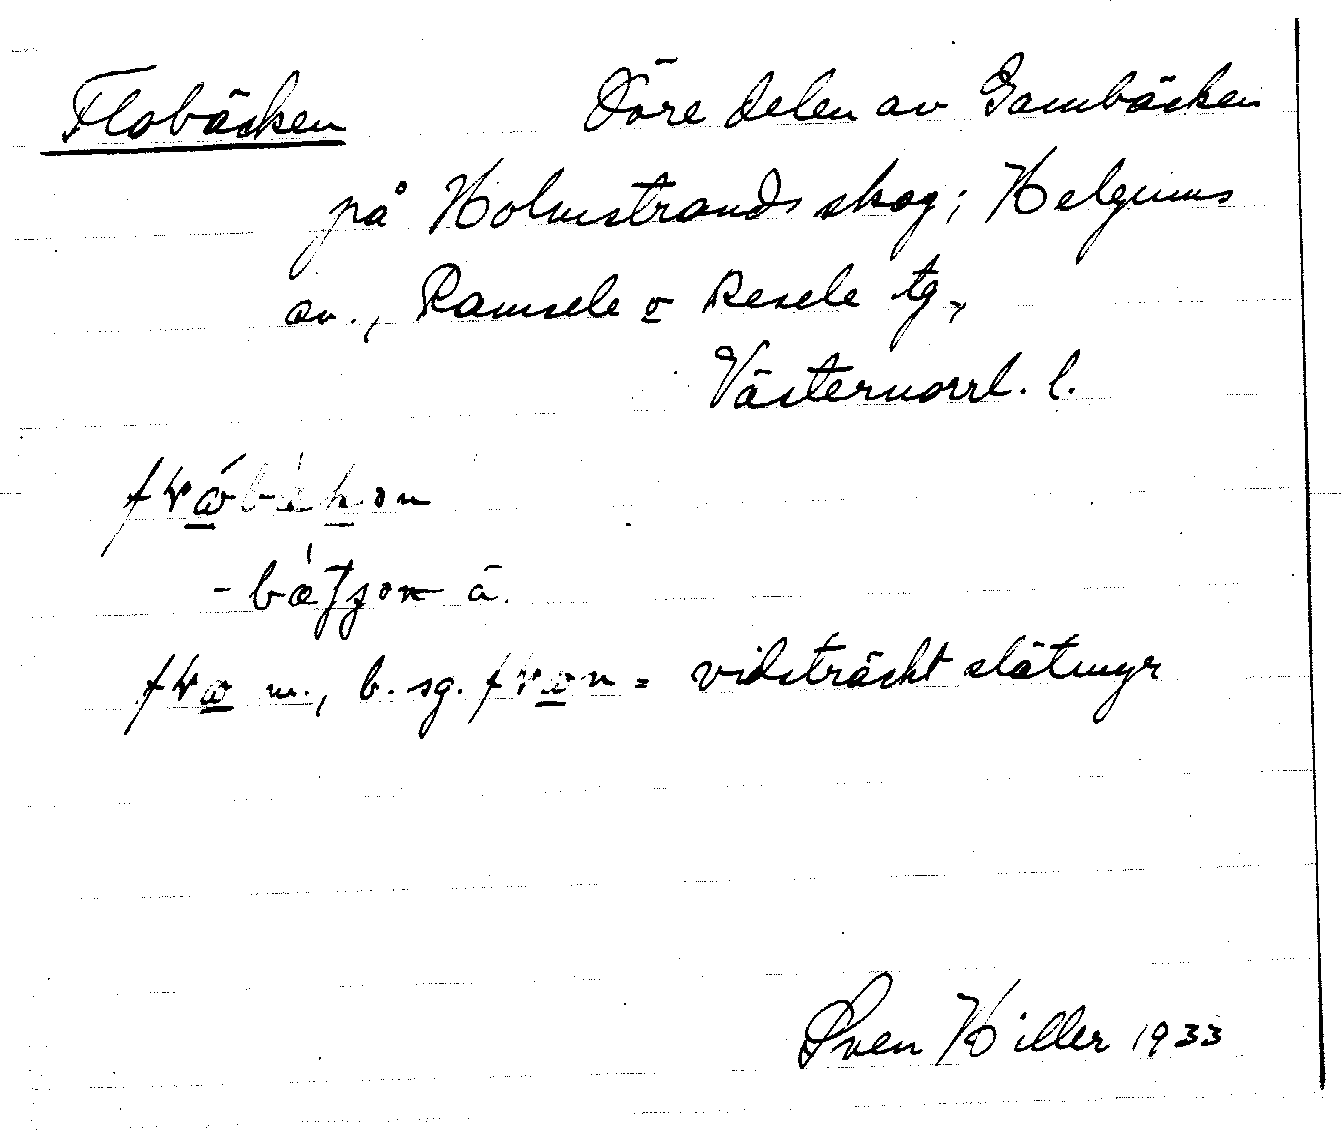 Flobäcken Övre delen av Gambäcken
på Holmstrands skog; Helgums
sn., Ramsele o Resele tg,
Västernorrl. l.
ä.
m., b. sg. = vidsträckt slåtmyr
Sven Hiller 1933